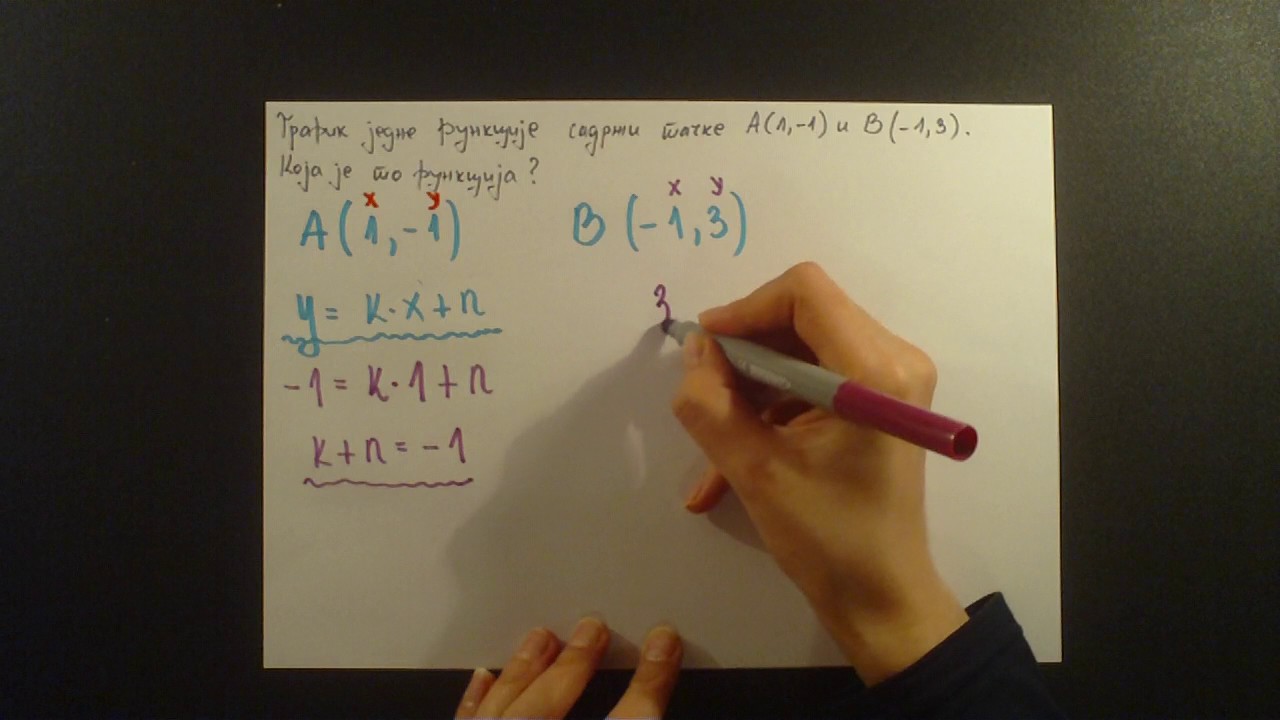 График једне функције садржи тачке A(1,-1) и B(-1,3).
Која је то функција?
x y
A(1,-1)
x y
B(-1,3)
y = k·x+n
-1 = k·1+n
k+n = -1
3